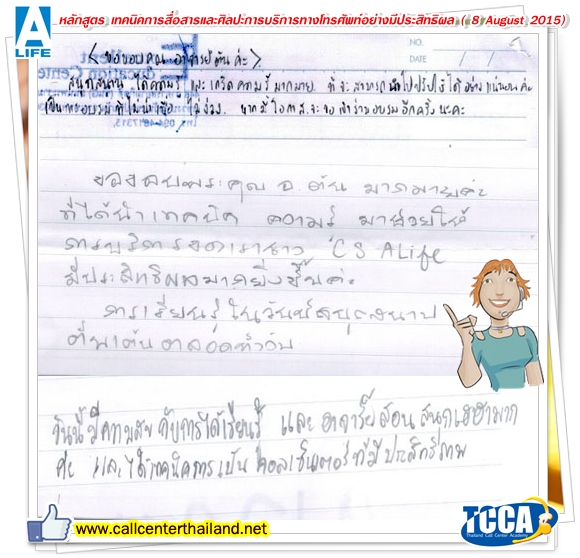 หลักสูตร เทคนิคการสื่อสารและศิลปะการบริการทางโทรศัพท์อย่างมีประสิทธิผล ( 8 August 2015)
A LIFE
NO.
DATE
< ขอขอบคุณ อาจารย์ต้น ค่ะ >
สนุกสนาน ได้ความรู้ และเกร็ดความรู้มากมาย ที่จะสามารถนำไปปรับใช้ได้อย่างแน่นอนค่ะ
เป็นการอบรมที่ไม่น่าเบื่อ ไม่ง่วง. หากมีโอกาสจะขอเข้าร่วมอบรมอีกครั้งนะคะ
ขอขอบพระคุณ อ. ต้น มากมายค่ะ
ที่ได้นำเทคนิค ความรู้ มาช่วยให้
การบริการของเราชาว CS ALife
มีประสิทธิผลมากยิ่งขึ้นค่ะ
การเรียนรู้ในวันนี้สนุกสนาน
ตื่นเต้นตลอดทั้งวัน
วันนี้มีความสุข กับการได้เรียนรู้ และ อาจารย์สอน สนุกเฮฮามาก
ค่ะ และได้เทคนิคการเป็น คอลเซ็นเตอร์ที่มีประสิทธิภาพ
www.callcenterthailand.net
TCCA
Thailand Call Center Academy